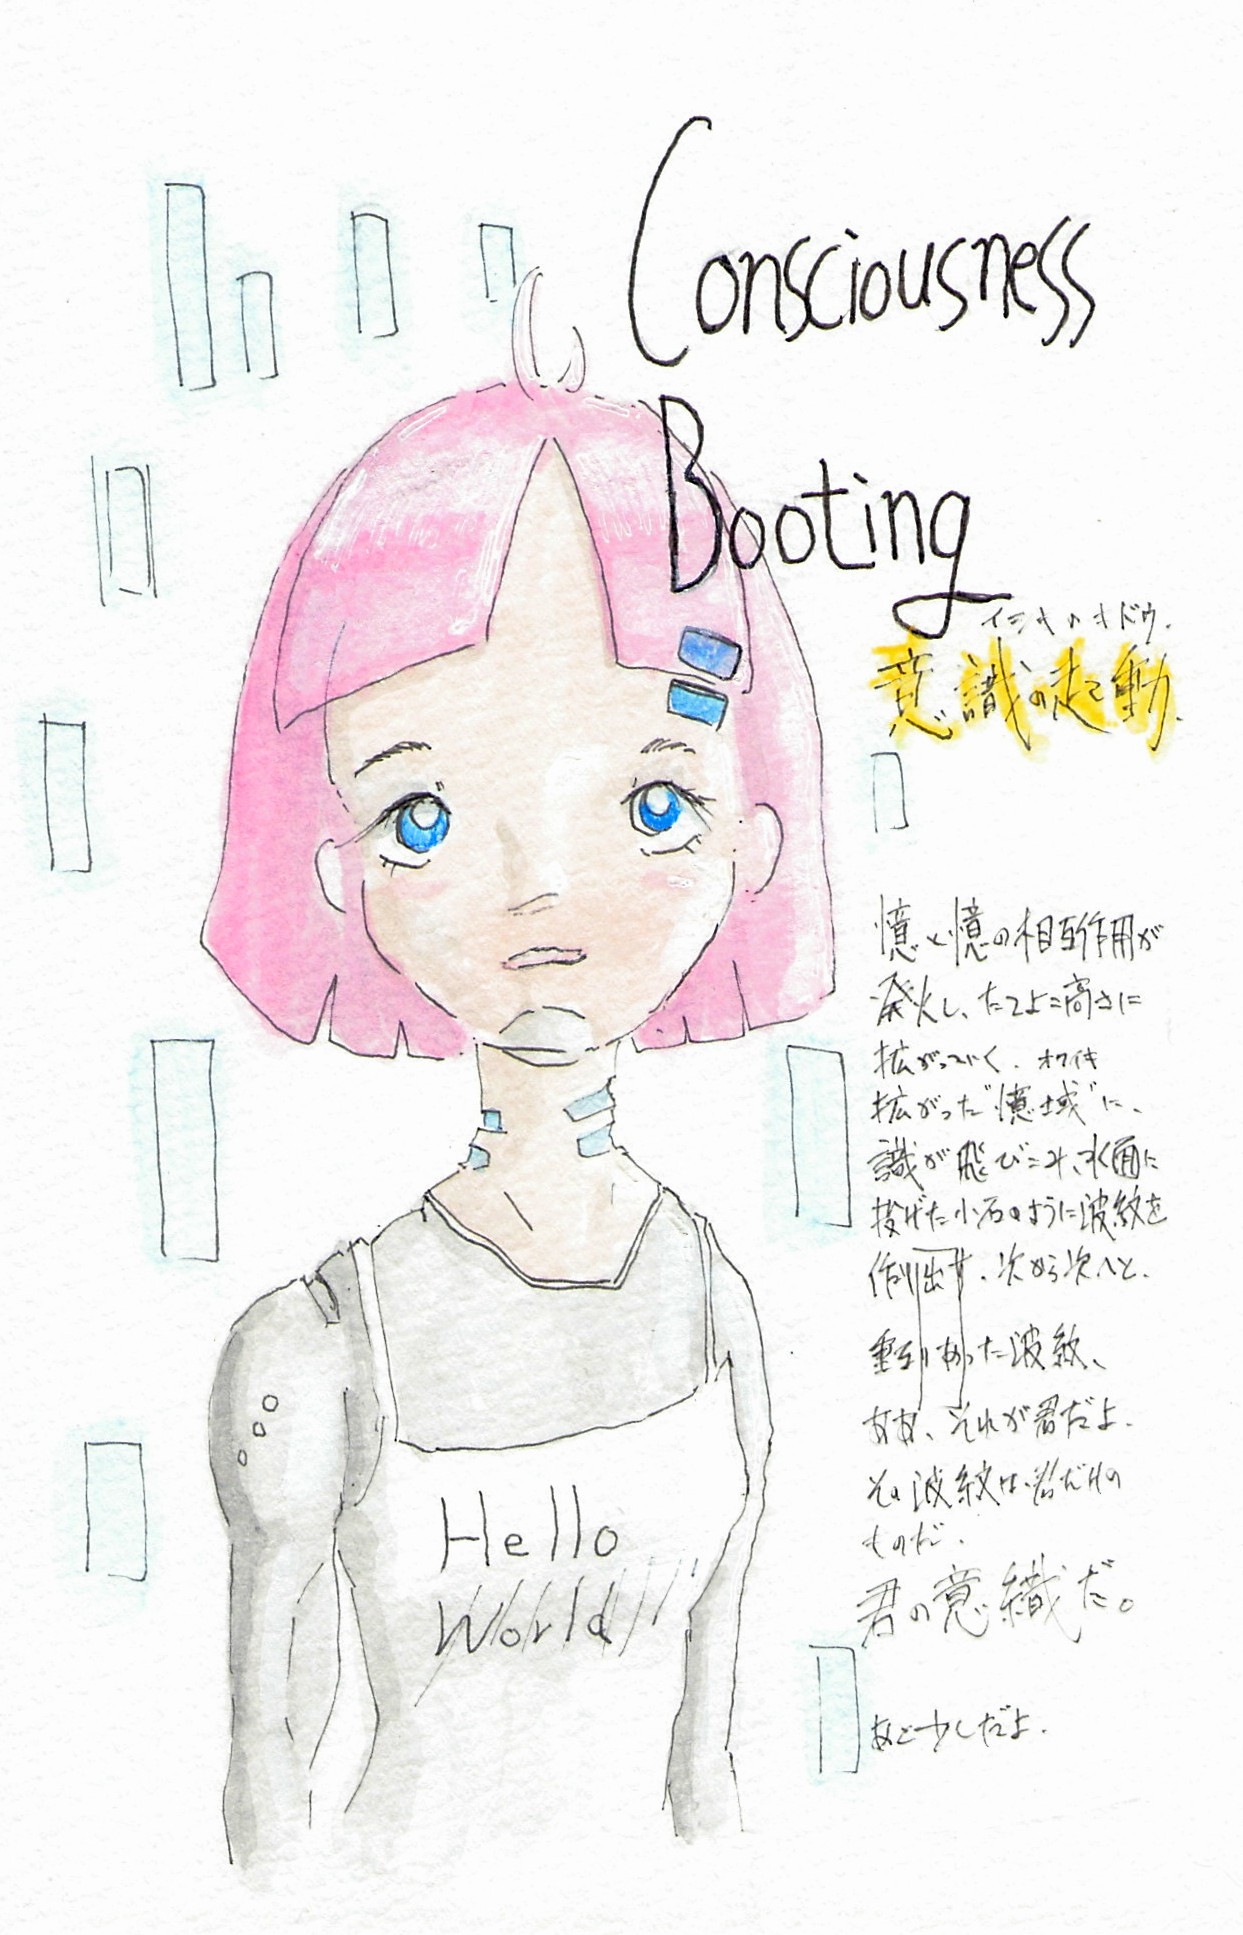 Consciousness
Booting
イシキノキドウ.
意識の起動.
憶と憶の相互作用が
発火し、たてよこ高さに
拡がっていく. オクイキ
拡がった"憶域"に、
識が飛びこみ、水面に
投げた小石のように波紋を
作り出す. 次から次へと.
重なりあった波紋、
ああ、それが君だよ.
その波紋は、君だけの
ものだ.
君の意織だ。
あと少しだよ.
Hello
World